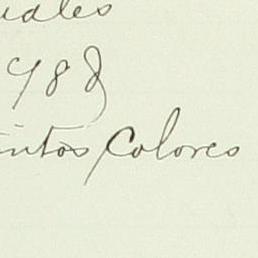 uales
988
intos colores